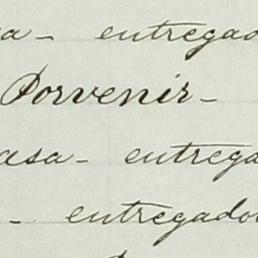 a - entregado
Porvenir -
asa - entrega
- entregado